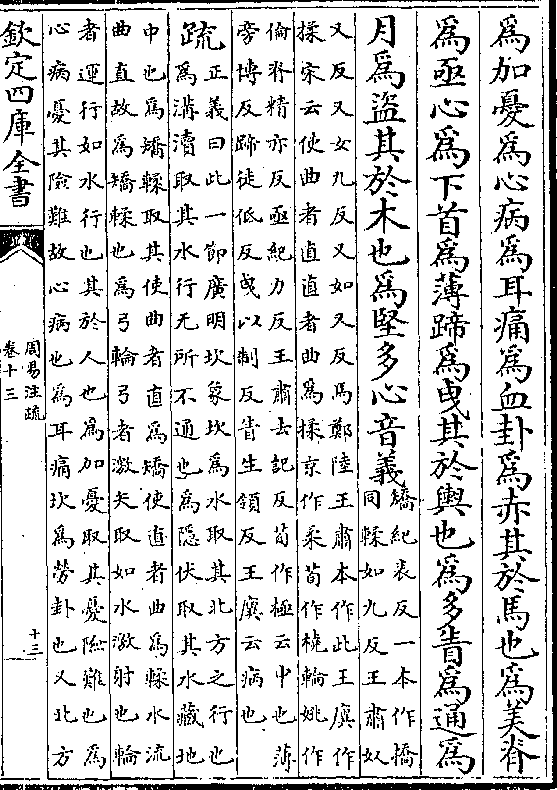 爲加憂爲心病爲耳痛爲血卦爲赤其於馬也爲美脊
爲亟心爲下首爲薄蹄爲曳其於輿也爲多眚爲通爲
月爲盜其於木也爲堅多心音義
矯紀表反一本作橋
同輮如九反王肅奴
又反又女九反又如又反馬鄭陸王肅本作此王廙作
揉宋云使曲者直直者曲爲揉京作柔荀作橈輪姚作
倫脊精亦反亟紀力反王肅去記反荀作極云中也薄
旁博反蹄徒低反曳以制反眚生領反王廙云病也
疏
正義曰此一節廣明坎象坎爲水取其北方之行也
爲溝瀆取其水行无所不通也爲隱伏取其水藏地
中也爲矯輮取其使曲者直爲矯使直者曲爲輮水流
曲直故爲矯輮也爲弓輪弓者激矢取如水激射也輪
者運行如水行也其於人也爲加憂取其憂險難也爲
心病憂其險難故心病也爲耳痛坎爲勞卦也又北方
欽定四庫全書
周易注疏
卷十三
十三